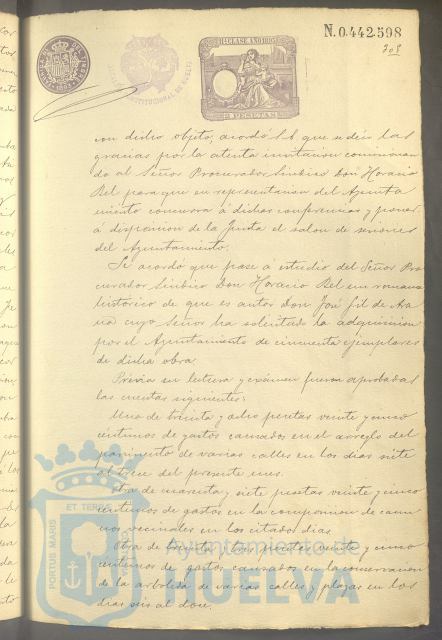 N. 0.442.598
208
11ª CLASE AÑO 1895
2 PESETAS
con dicho objeto, acordó S.E. que se den las
gracias por la atenta invitacion comisionan
do al Señor Procurador Síndico Don Horacio
Bel para que en representacion del Ayunta
miento concurra á dichas conferencias y poner
á disposicion de la Junta el salon de sesiones
del Ayuntamiento.
Se acordó que pase á estudio del Señor Pro
curador Síndico Don Horacio Bel un romance
histórico de que es autor Don José Gil de
cuyo Señor ha solicitado la adquisicion
por el Ayuntamiento de cincuenta ejemplares
de dicha obra.
Previa su lectura y exámen fueron aprobadas
las cuentas siguientes:
Una de treinta y ocho pesetas veinte y cinco
céntimos de gastos causados en el arreglo del
pavimento de varias calles en los dias siete
al trece del presente mes.
Otra de cuarenta y siete pesetas veinte y cinco
céntimos de gastos en la composicion de cami
nos vecinales en los citados dias.
Otra de y tres pesetas veinte y cinco
céntimos de gastos causados en la conservacion
de la arboleda de varias calles y plazas en los
dias seis al doce.
PORTUS MARIS
ET TERRAE
Ayuntamiento de
HUELVA